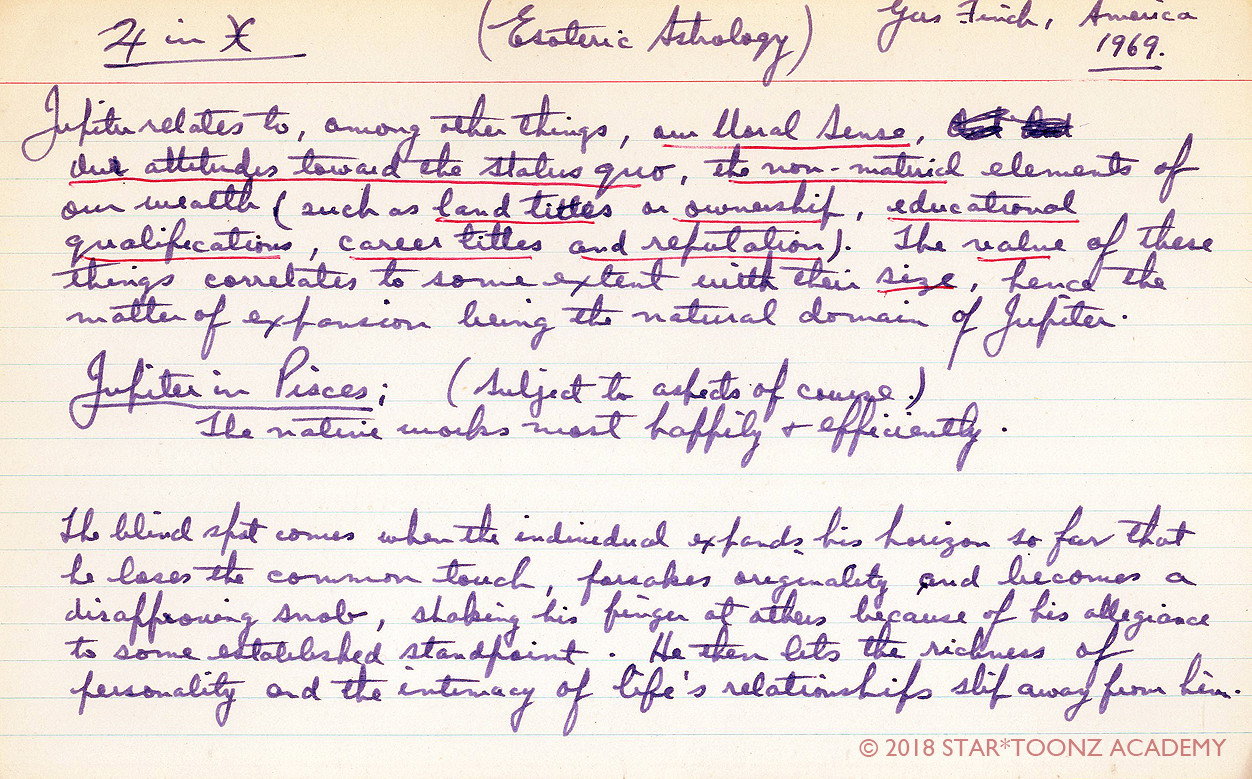 ♃ in ♓ (Esoteric Astrology) Gus Finch, America
1969.
Jupiter relates to, among other things, our Moral Sense,
our attitudes toward the status quo, the non-material elements of
our wealth (such as land titles or ownership, educational
qualifications, career titles and reputation). The value of these
things correlates to some extent with their size, hence the
matter of expansion being the natural domain of Jupiter.
Jupiter in Pisces; (subject to aspects of course.)
The native works most happily + efficiently.
The blind spot comes when the individual expands his horizon so far that
he loses the common touch, forsakes originality and becomes a
disapproving snob, shaking his finger at others because of his allegiance
to some established standpoint. He then lets the richness of
personality and the intimacy of life's relationships slip away from him.
© 2018 STAR*TOONZ ACADEMY